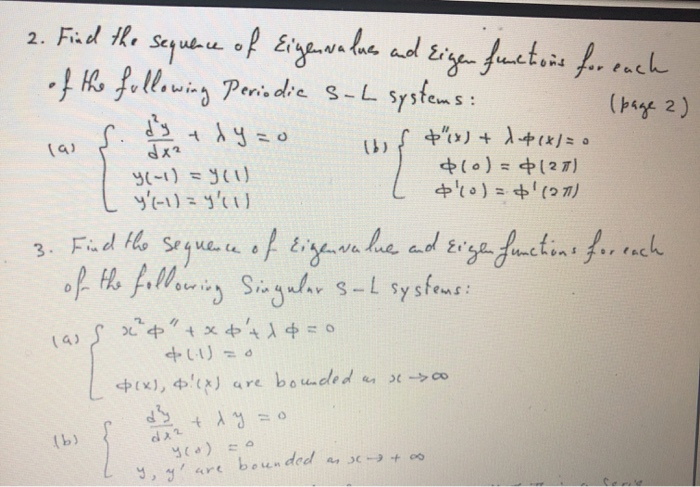 2. Find the sequence of Eigenvalues and Eigen functions for each
of the following Periodic S-L systems: (page 2)
(a) { d²y/dx² + λy = 0
y(-1) = y(1)
y'(-1) = y'(1)
(b) { φ"(x) + λφ(x) = 0
φ(0) = φ(2π)
φ'(0) = φ'(2π)
3. Find the sequence of Eigenvalue and Eigen functions for each
of the following Singular S-L systems:
(a) { x²φ" + xφ' + λφ = 0
φ(1) = 0
φ(x), φ'(x) are bounded as x → ∞
(b) { d²y/dx² + λy = 0
y(0) = 0
y, y' are bounded as x → +∞